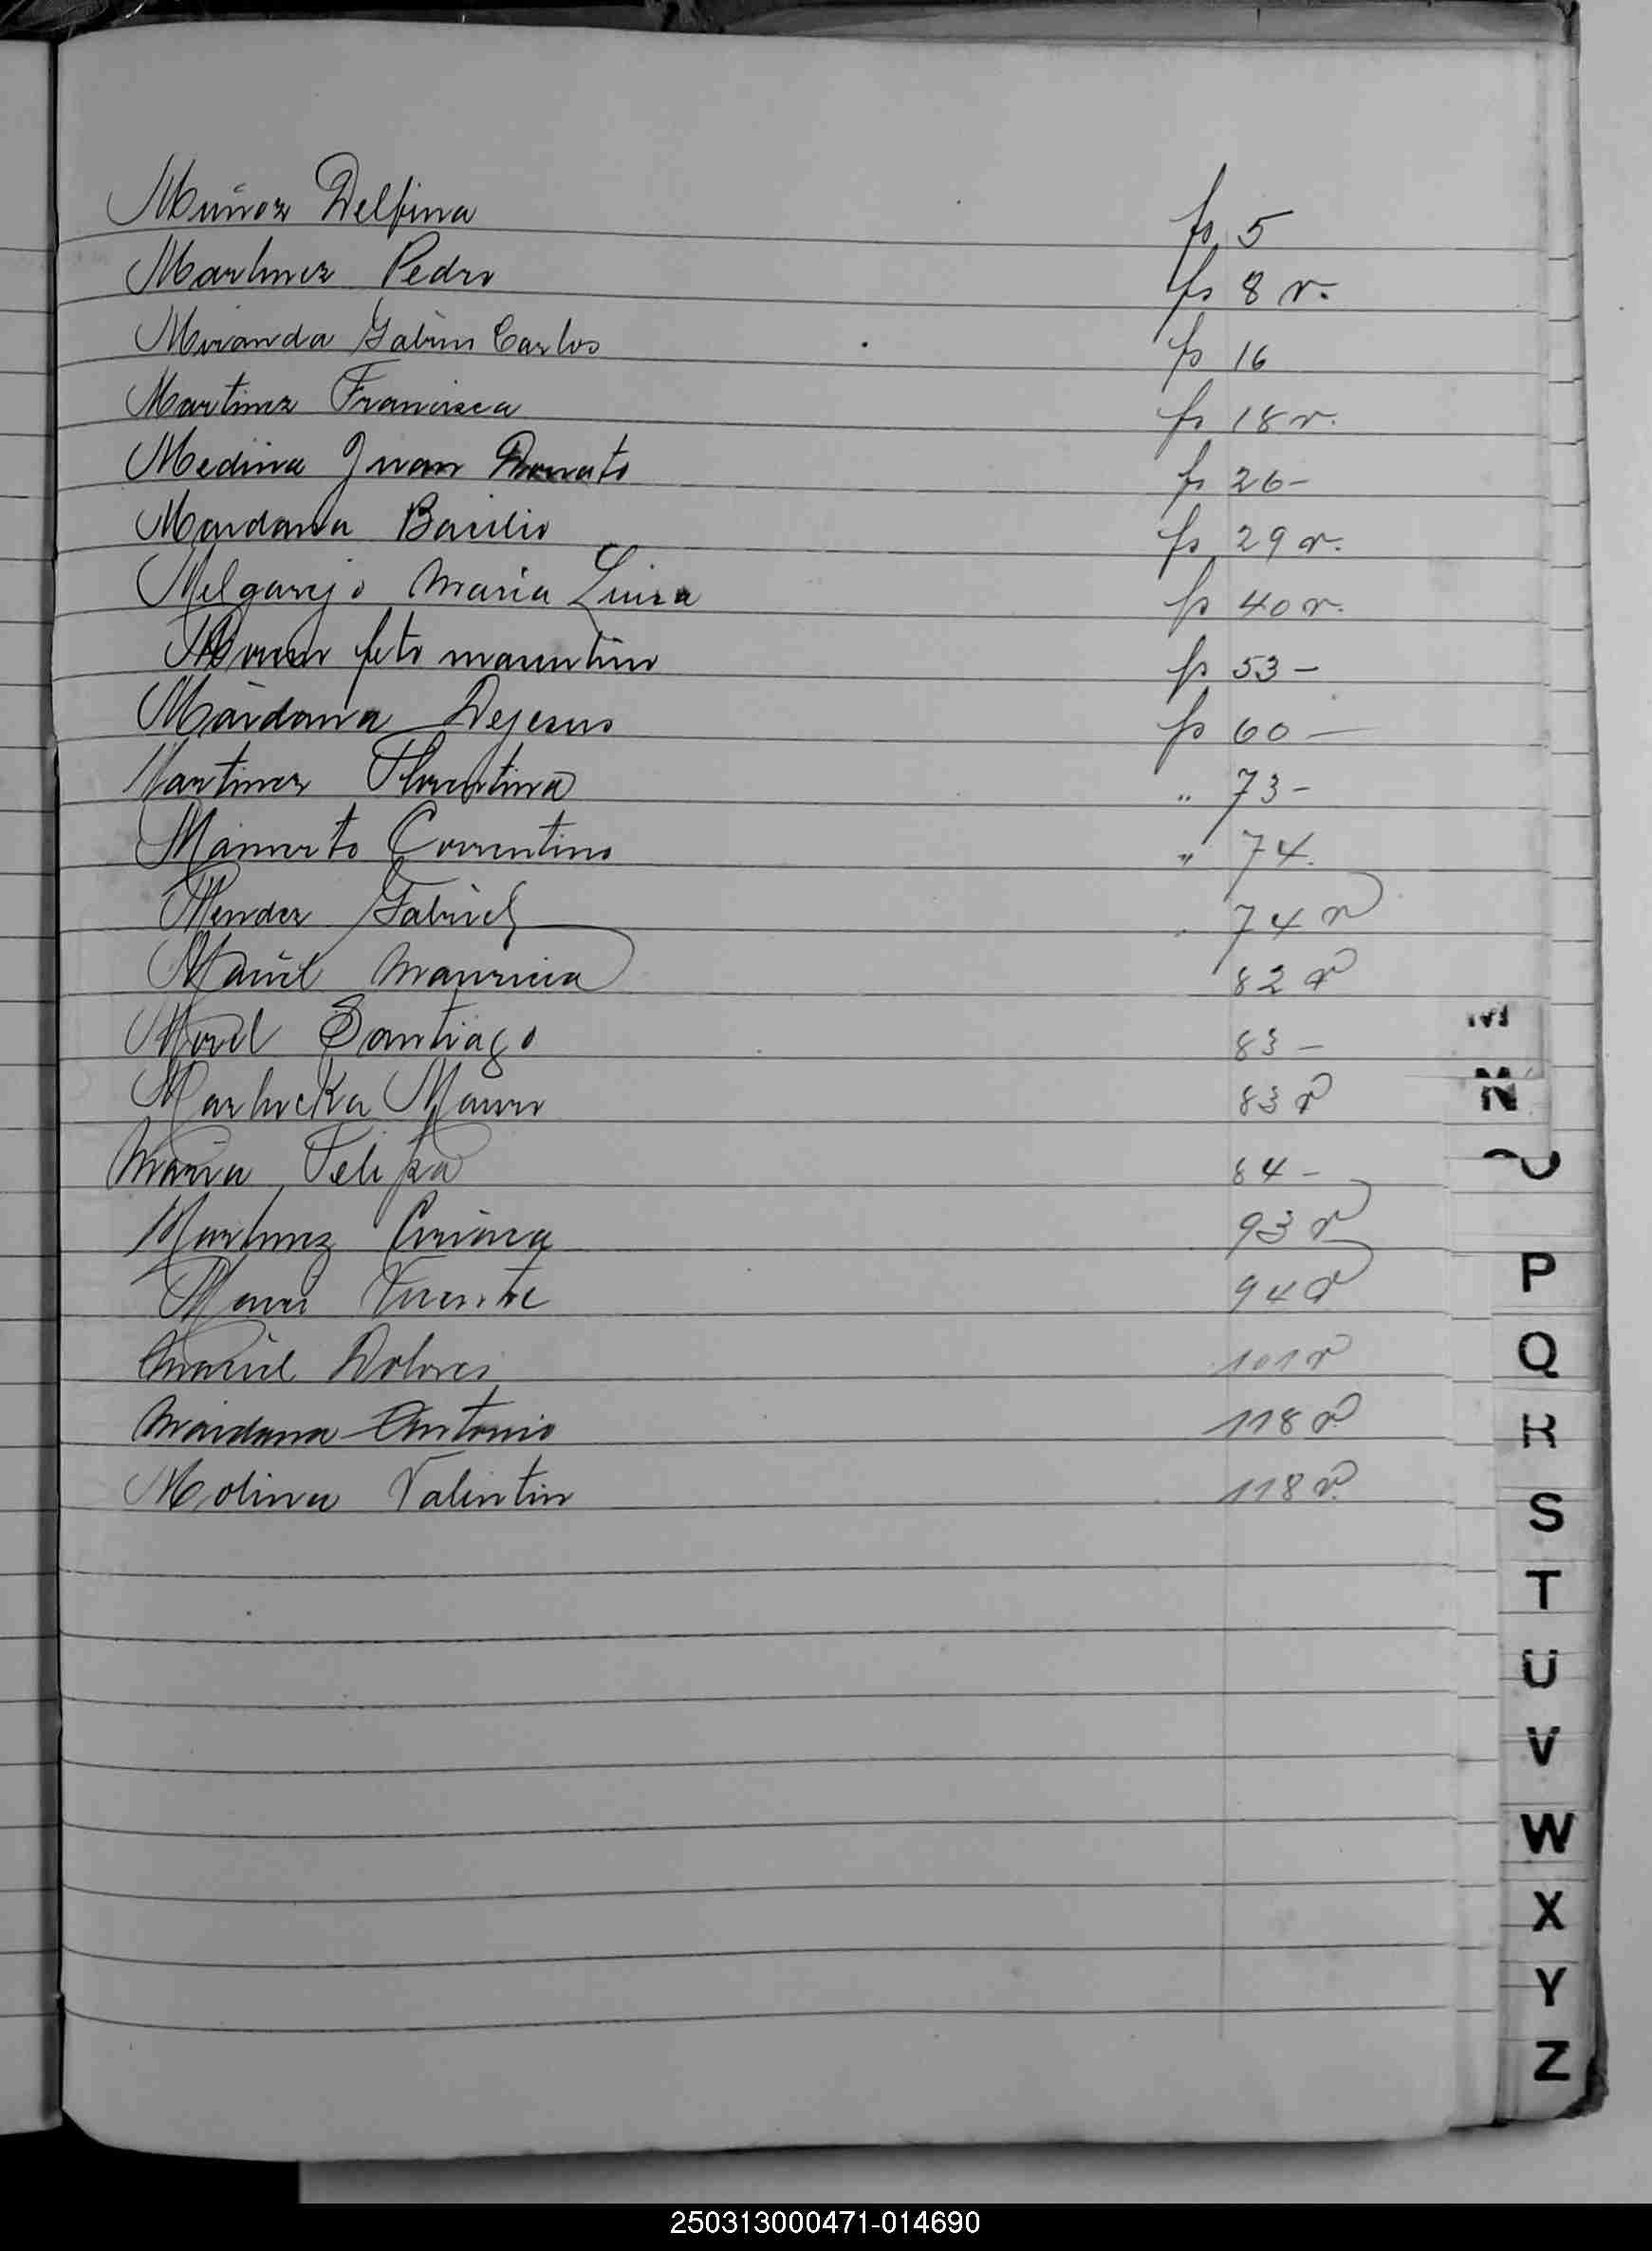 Muñoz Delfina fs 5
Martinez Pedro fs 8 v.
Miranda Gabino Carlos fs 16
Martinez Francisca fs 18 v.
Medina Juan Donato fs 26-
Maidana Basilio fs 29 v.
Melgarejo Maria Luisa fs 40 v.
feto masculino fs 53-
Maidana Dejesus fs 60-
Martinez Florentina " 73-
Mamerto Correntino " 74.
Mendez Gabriel " 74 v
Maciel Mauricia 82 v
Morel Santiago 83-
83 v
Maria Felipa 84-
Martinez 93 v
Vicente 94 v
Maciel Dolores 101 v
Maidana Antonio 118 v
Molina Valentin 118 v.
M
N
P
Q
R
S
T
U
V
W
X
Y
Z
250313000471-014690